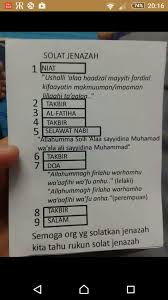 20:16
SOLAT JENAZAH
1 NIAT
"Ushalli 'alaa haadzal mayyiti fardlal
kifaayatin makmuuman/imaaman
lillaahi ta'aalaa."
2 TAKBIR
3 AL-FATIHA
4 TAKBIR
5 SELAWAT NABI
"Allahumma Solli 'Alaa sayyidina Muhamad
wa'ala ali sayyidina Muhammad"
6 TAKBIR
7 DOA
"Allahummagh firlahu warhamhu
wa'aafihi wa'fu anhu." (lelaki)
"Allahummagh firlaha warhamha
wa'aafiha wa'fu anha." (perempuan)
8 TAKBIR
9 SALAM
Semoga org yg solatkan jenazah
kita tahu rukun solat jenazah